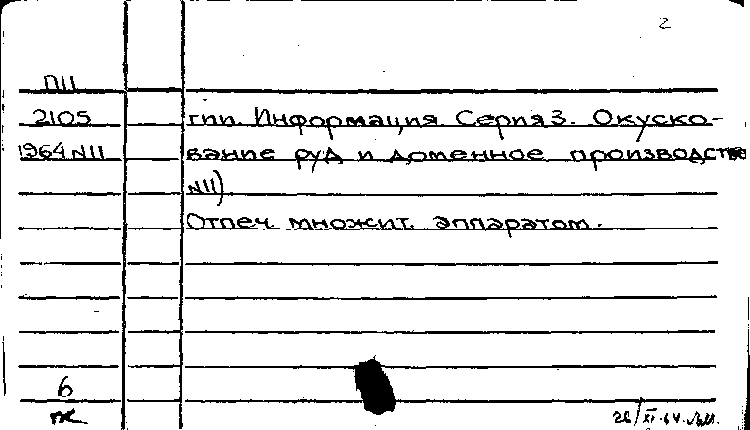 2
П11
2105 гпп. Информация. Серия 3. Окуско-
1964 N11 вание руд и доменное производство
N11).
Отпеч. множит. аппаратом.
6
пж
26/XI-64